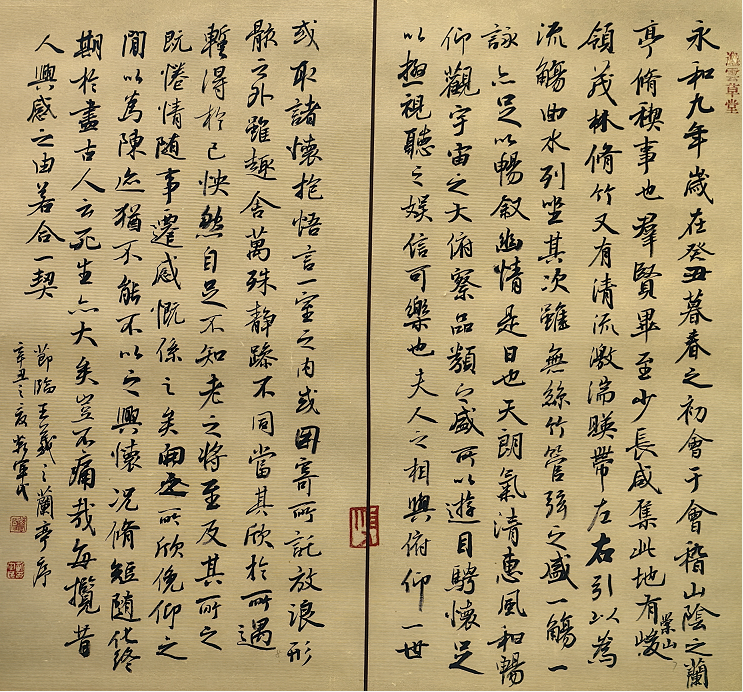 永和九年歲在癸丑暮春之初會于會稽山陰之蘭
亭脩稧事也羣賢畢至少長咸集此地有崇山峻
領茂林脩竹又有清流激湍暎帶左右引以為
流觴曲水列坐其次雖無絲竹管弦之盛一觴一
詠亦足以暢敘幽情是日也天朗氣清惠風和暢
仰觀宇宙之大俯察品類之盛所以遊目騁懷足
以極視聽之娛信可樂也夫人之相與俯仰一世
或取諸懷抱悟言一室之內或因寄所託放浪形
骸之外雖趣舍萬殊靜躁不同當其欣於所遇
蹔得於己怏然自足不知老之將至及其所之
既惓情随事遷感慨係之矣向之所欣俛仰之
間以為陳迹猶不能不以之興懷況脩短随化終
期於盡古人云死生亦大矣豈不痛哉每攬昔
人興感之由若合一契
節臨王羲之蘭亭序
辛丑之夏
雲草堂